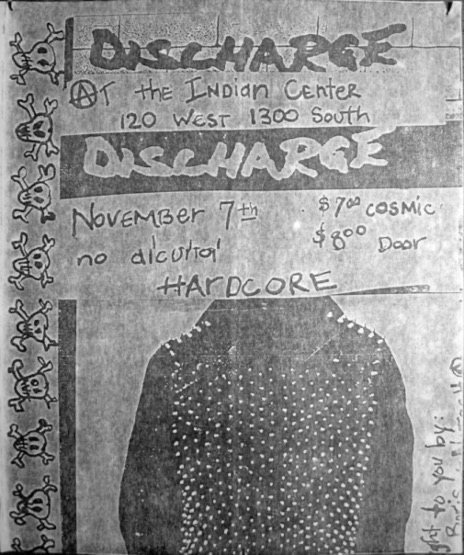 DISCHARGE
AT the INDIAN CENTER
120 WEST 1300 South
DISCHARGE
NOVEMBER 7th
$7.00 COSMIC
$8.00 DOOR
no alcohol
HARDCORE
ght to you by: